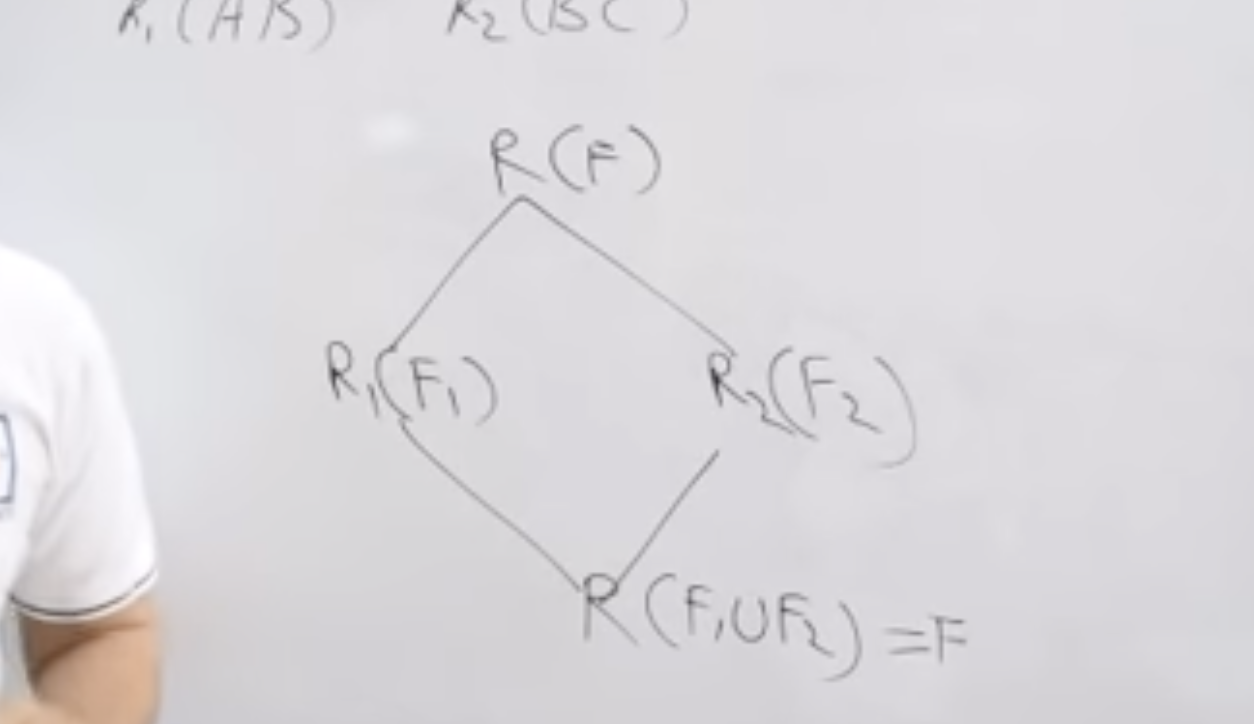 R₁(AB) R₂(BC)
R(F)
R₁(F₁) R₂(F₂)
R(F₁∪F₂)=F